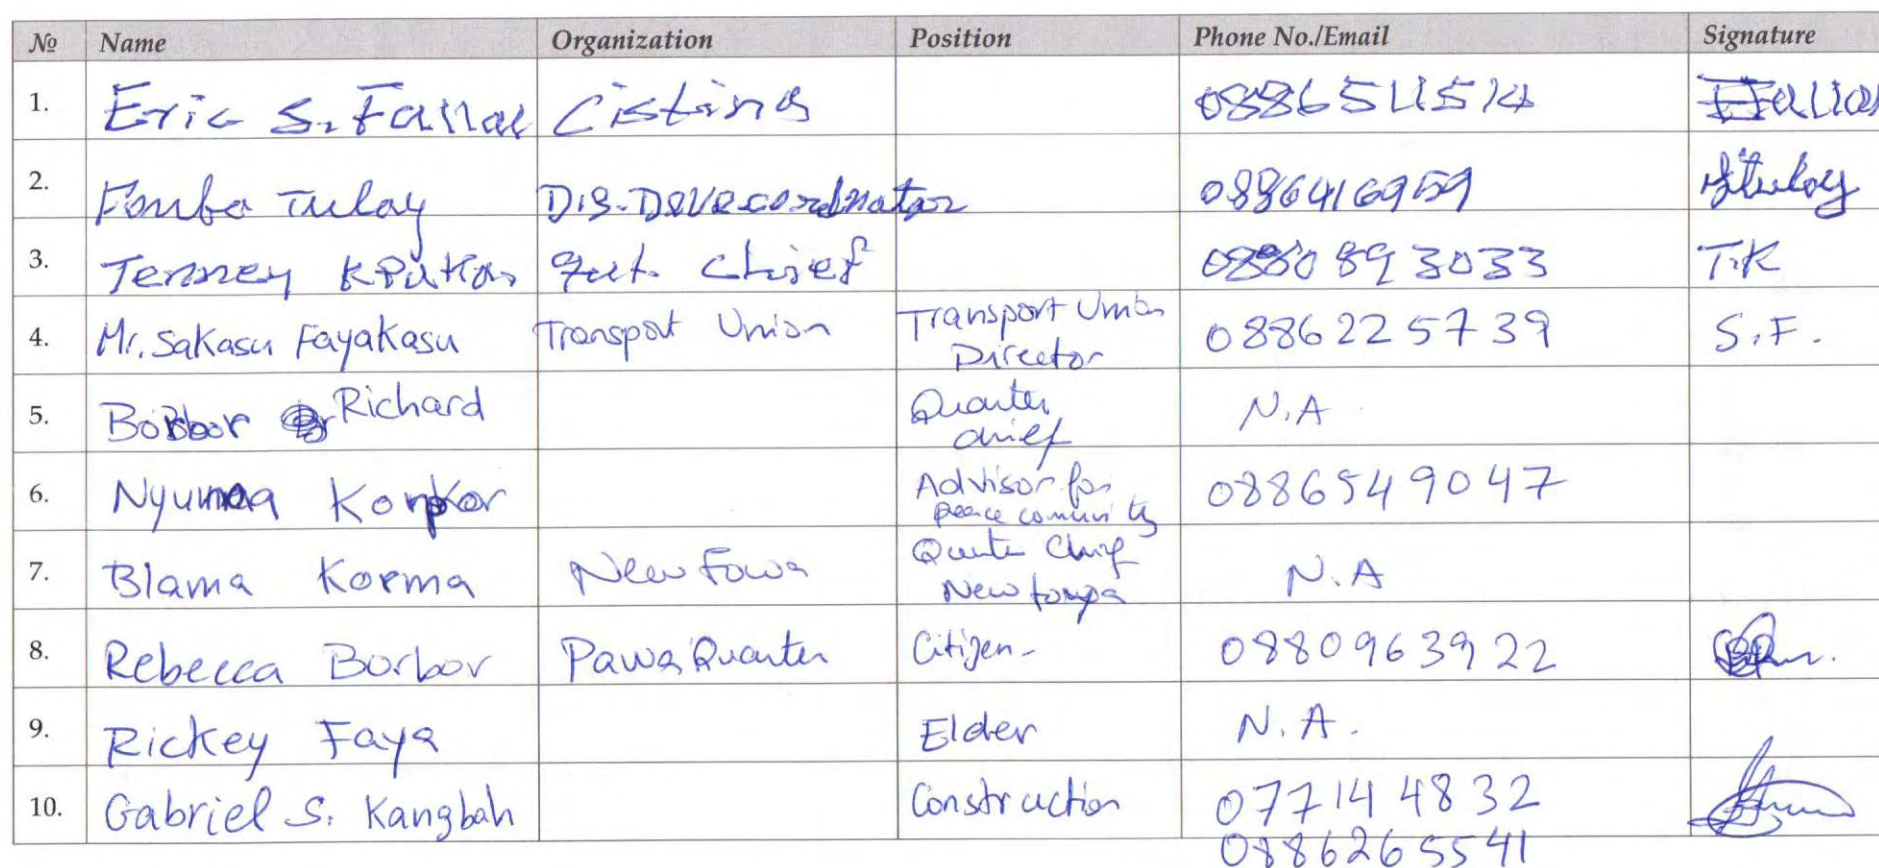 № Name Organization Position Phone No./Email Signature
1. Eric S. Fallae 0886511514
2. Fomba Tulay Dis. Deve coordnator 0886416959
3. Tenney Chief 0880893033 T.K
4. Mr. Sakasu Fayakasu Transpot Union Transport Union
Director 0886225739 S.F.
5. Borbor Richard Quarter
chief N.A
6. Nyumaa Korpkor Advisor for
peace 0886549047
7. Blama Korma New Fowa Quarter Chief
New N.A
8. Rebecca Borbor Pawa Quarter Citizen- 0880963922
9. Rickey Faya Elder N.A.
10. Gabriel S. Kangbah Construction 0771444832
0886265541